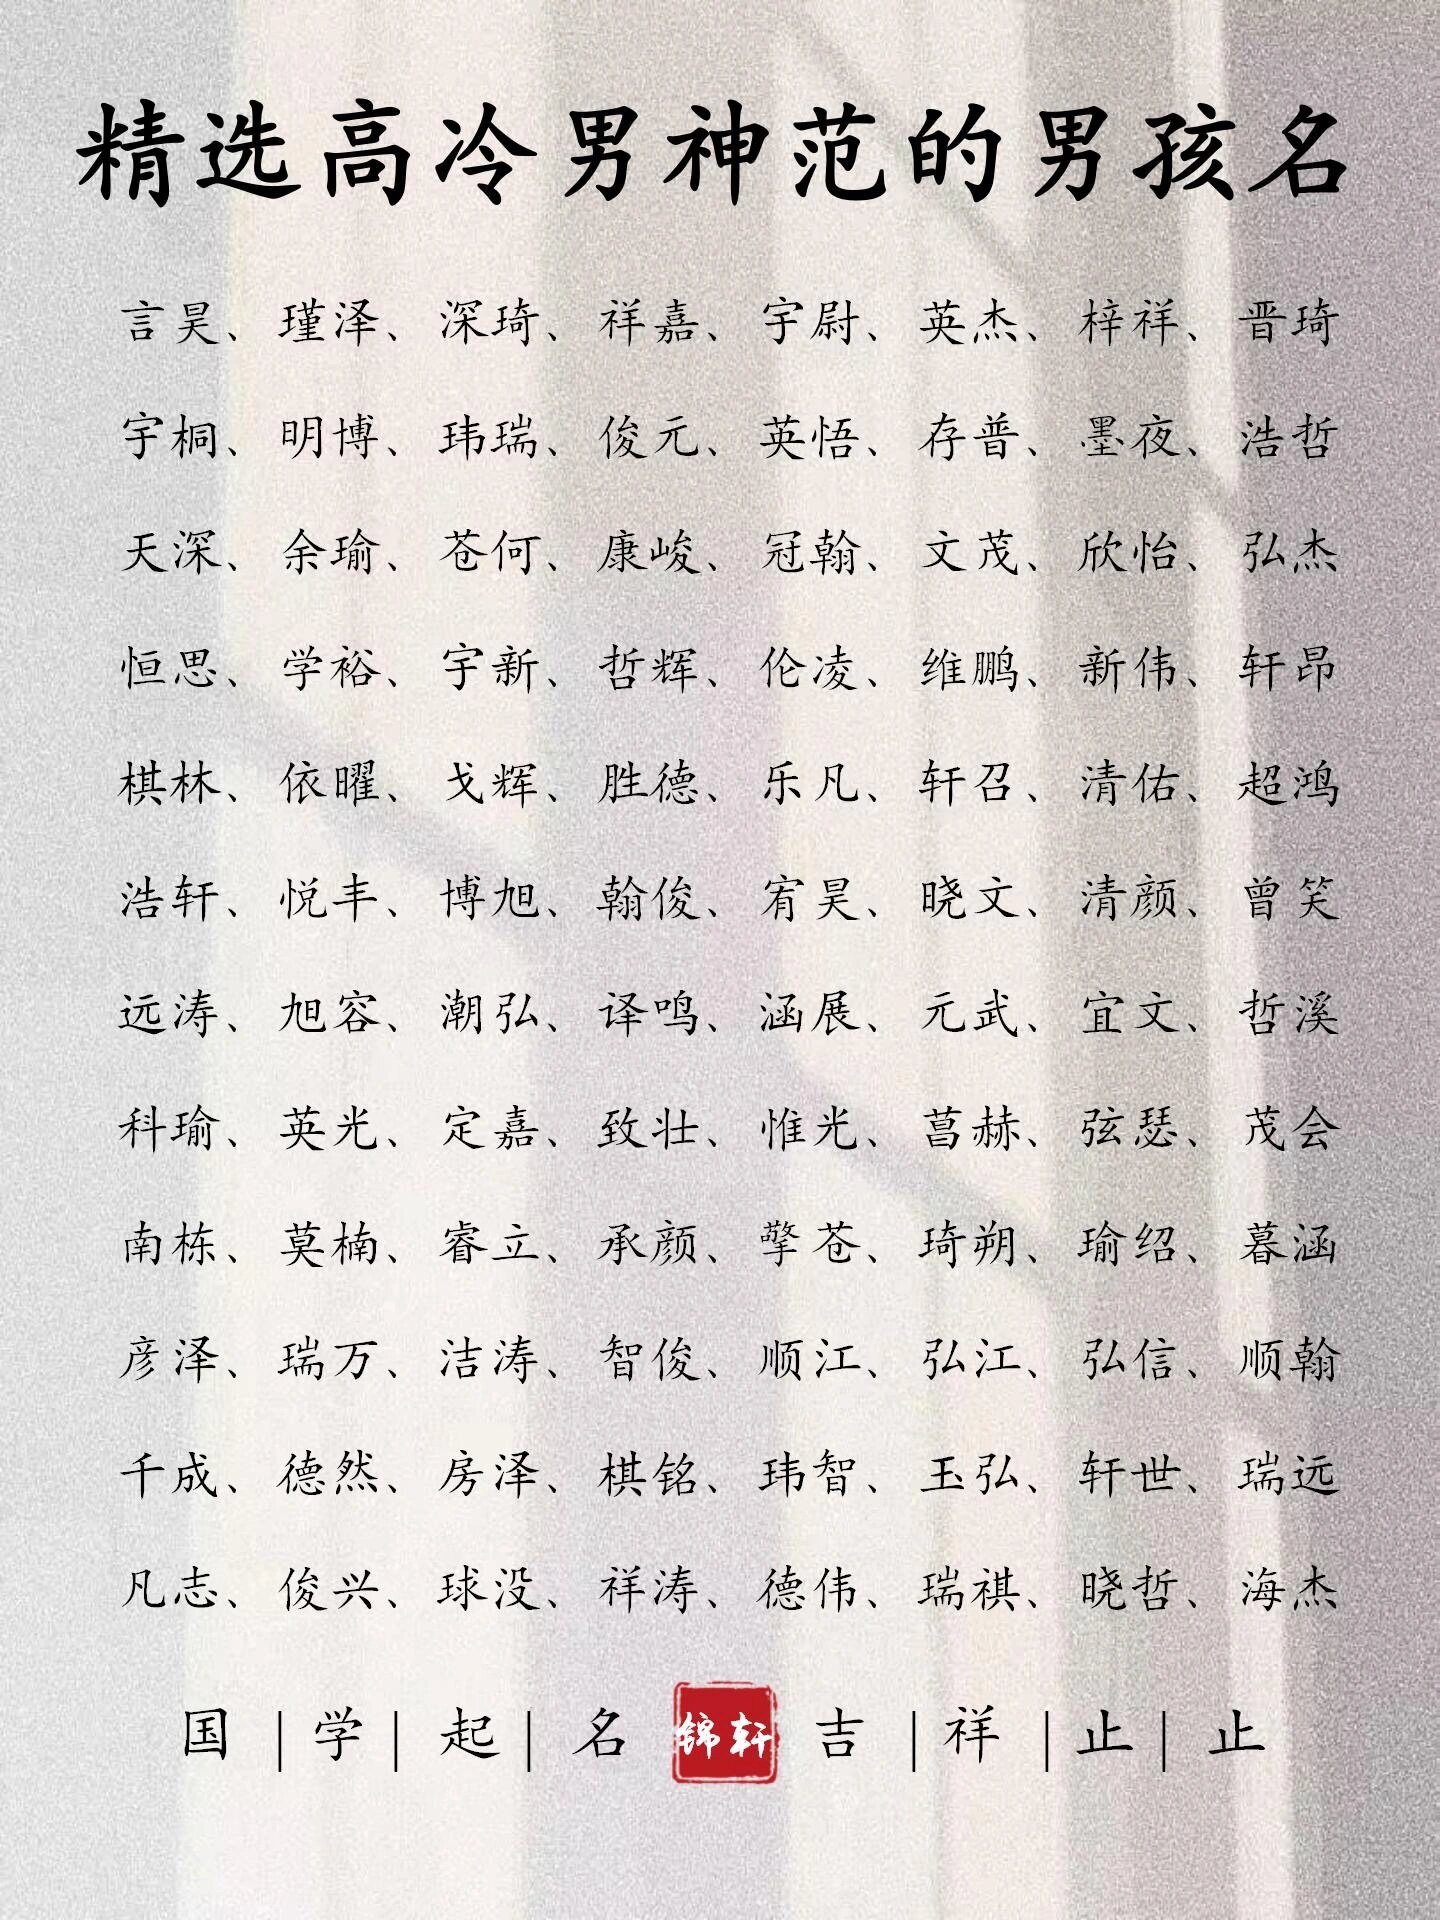 精选高冷男神范的男孩名
言昊、瑾泽、深琦、祥嘉、宇尉、英杰、梓祥、晋琦
宇桐、明博、玮瑞、俊元、英悟、存普、墨夜、浩哲
天深、余瑜、苍何、康峻、冠翰、文茂、欣怡、弘杰
恒思、学裕、宇新、哲辉、伦凌、维鹏、新伟、轩昂
棋林、依曜、戈辉、胜德、乐凡、轩召、清佑、超鸿
浩轩、悦丰、博旭、翰俊、宥昊、晓文、清颜、曾笑
远涛、旭容、潮弘、译鸣、涵展、元武、宜文、哲溪
科瑜、英光、定嘉、致壮、惟光、菖赫、弦瑟、茂会
南栋、莫楠、睿立、承颜、擎苍、琦朔、瑜绍、暮涵
彦泽、瑞万、洁涛、智俊、顺江、弘江、弘信、顺翰
千成、德然、房泽、棋铭、玮智、玉弘、轩世、瑞远
凡志、俊兴、球没、祥涛、德伟、瑞祺、晓哲、海杰
国|学|起|名 锦轩 吉|祥|止|止